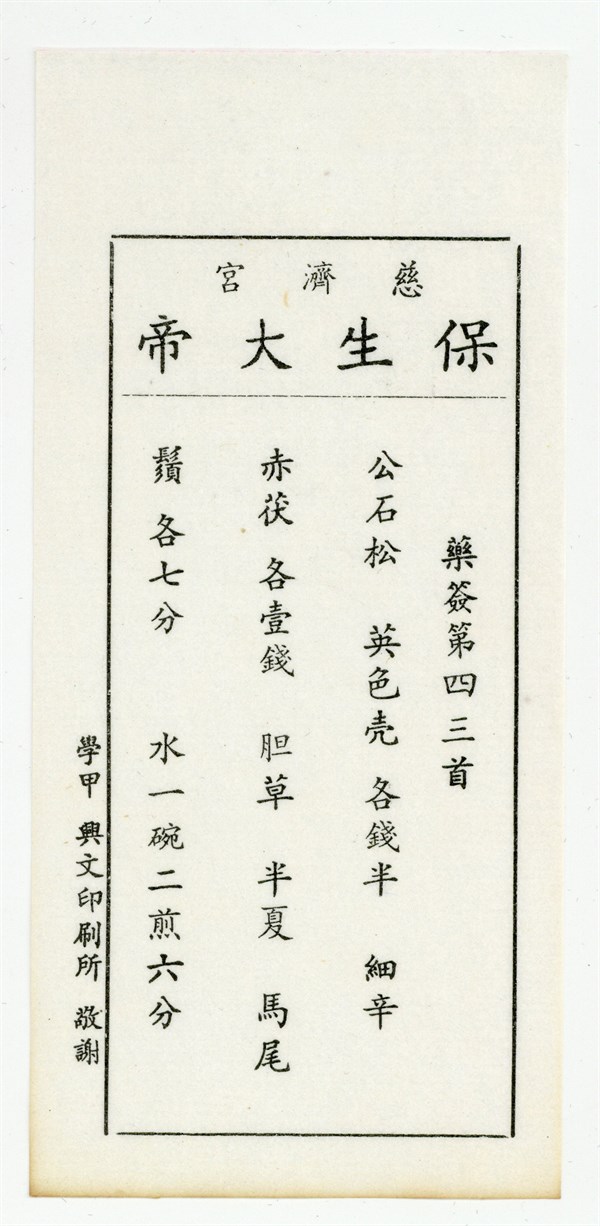 慈濟宮
保生大帝
藥簽第四三首
公石松 英色壳 各錢半 細辛
赤茯 各壹錢 胆草 半夏 馬尾
鬚 各七分 水一碗二煎六分
學甲 興文印刷所 敬謝